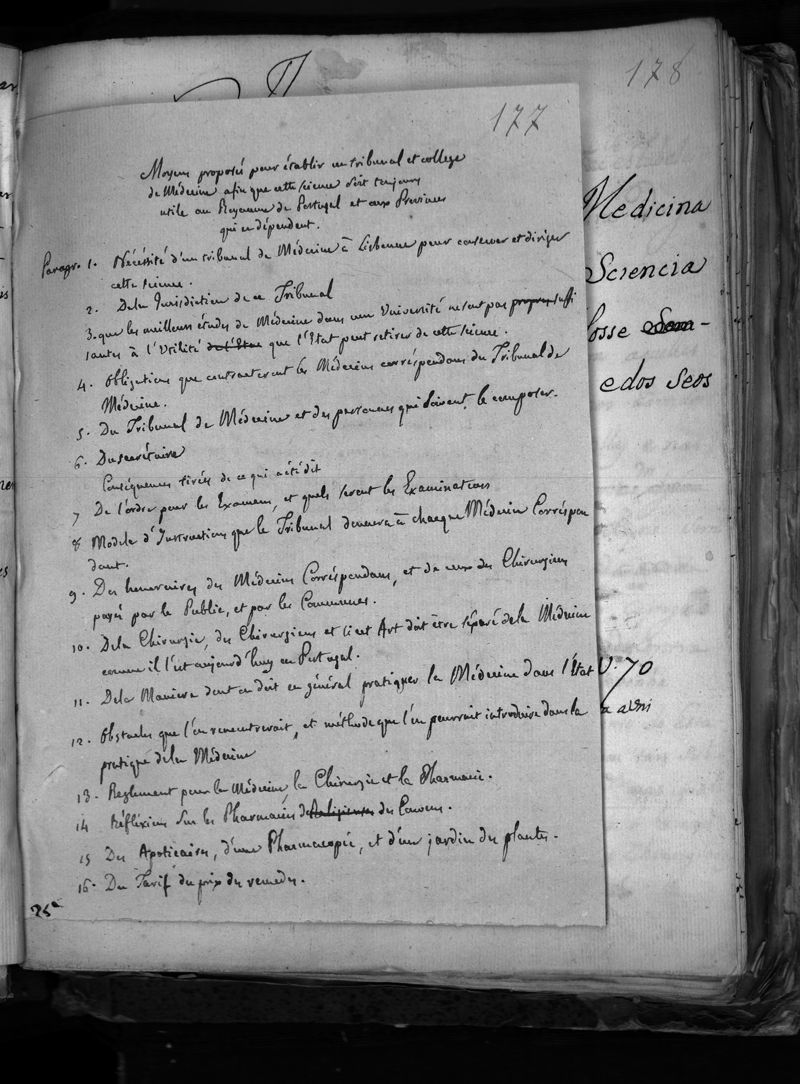 178
177
Moyens proposés pour établir un tribunal et college
de Médecine afin que cette science soit toujours
utile au Royaume de Portugal et aux Provinces
qui en dépendent.
Paragr. 1. Nécessité d'un tribunal de Médecine à Lisbonne pour conserver et diriger
cette science.
2. Dela Jurisdiction de ce Tribunal
3. que les meilleurs études de Médecine dans une Université ne sont pas propres suffi
santes à l'Utilité de l'Etat que l'Etat peut retirer de cette science.
4. Obligations que contracteront les Médecins correspondans du Tribunal de
Médecine.
5. Du Tribunal de Médecine et des personnes qui doivent le composer.
6. Du secrétaire
Conséquences tirées de ce qui a été dit
7 De l'ordre pour les Examens, et quels seront les Examinateurs
8 Modele d'Instructions que le Tribunal donnera à chaque Médecin Correspon
dant.
9. Des honoraires des Médecins Correspondans, et de ceux des Chirurgiens
payés par le Public, et par les Communes.
10. Dela Chirurgie, des Chirurgiens et si cet Art doit être séparé dela Médecine
comme il l'est aujourd'huy en Portugal.
11. Dela Maniere dont on doit en général pratiquer la Médecine dans l'Etat
12. Obstacles que l'on rencontreroit, et méthode que l'on pourrait introduire dans la
pratique dela Médecine
13. Reglement pour la Médecine, la Chirurgie et la Pharmacie.
14 Réfléxions sur les Pharmacies de Religieuses des Couvens.
15 Des Apoticaires, d'une Pharmacopée, et d'un jardin des plantes.
16. Du Tarif du prix des remedes.
25ª
Medicina
Sciencia
fosse Sem-
edos Seos
V. 70